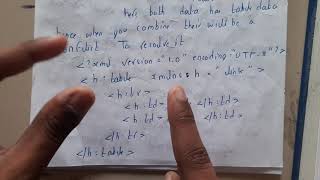 their both data has table data
hence when you combine their will be a
conflict To resolve it
<?xml version = "1.0" encoding = "UTF-8"?>
<h:table xmlns:h = "link">
<h:tr>
<h:td> </h:td>
<h:td> </h:td>
</h:tr>
</h:table>